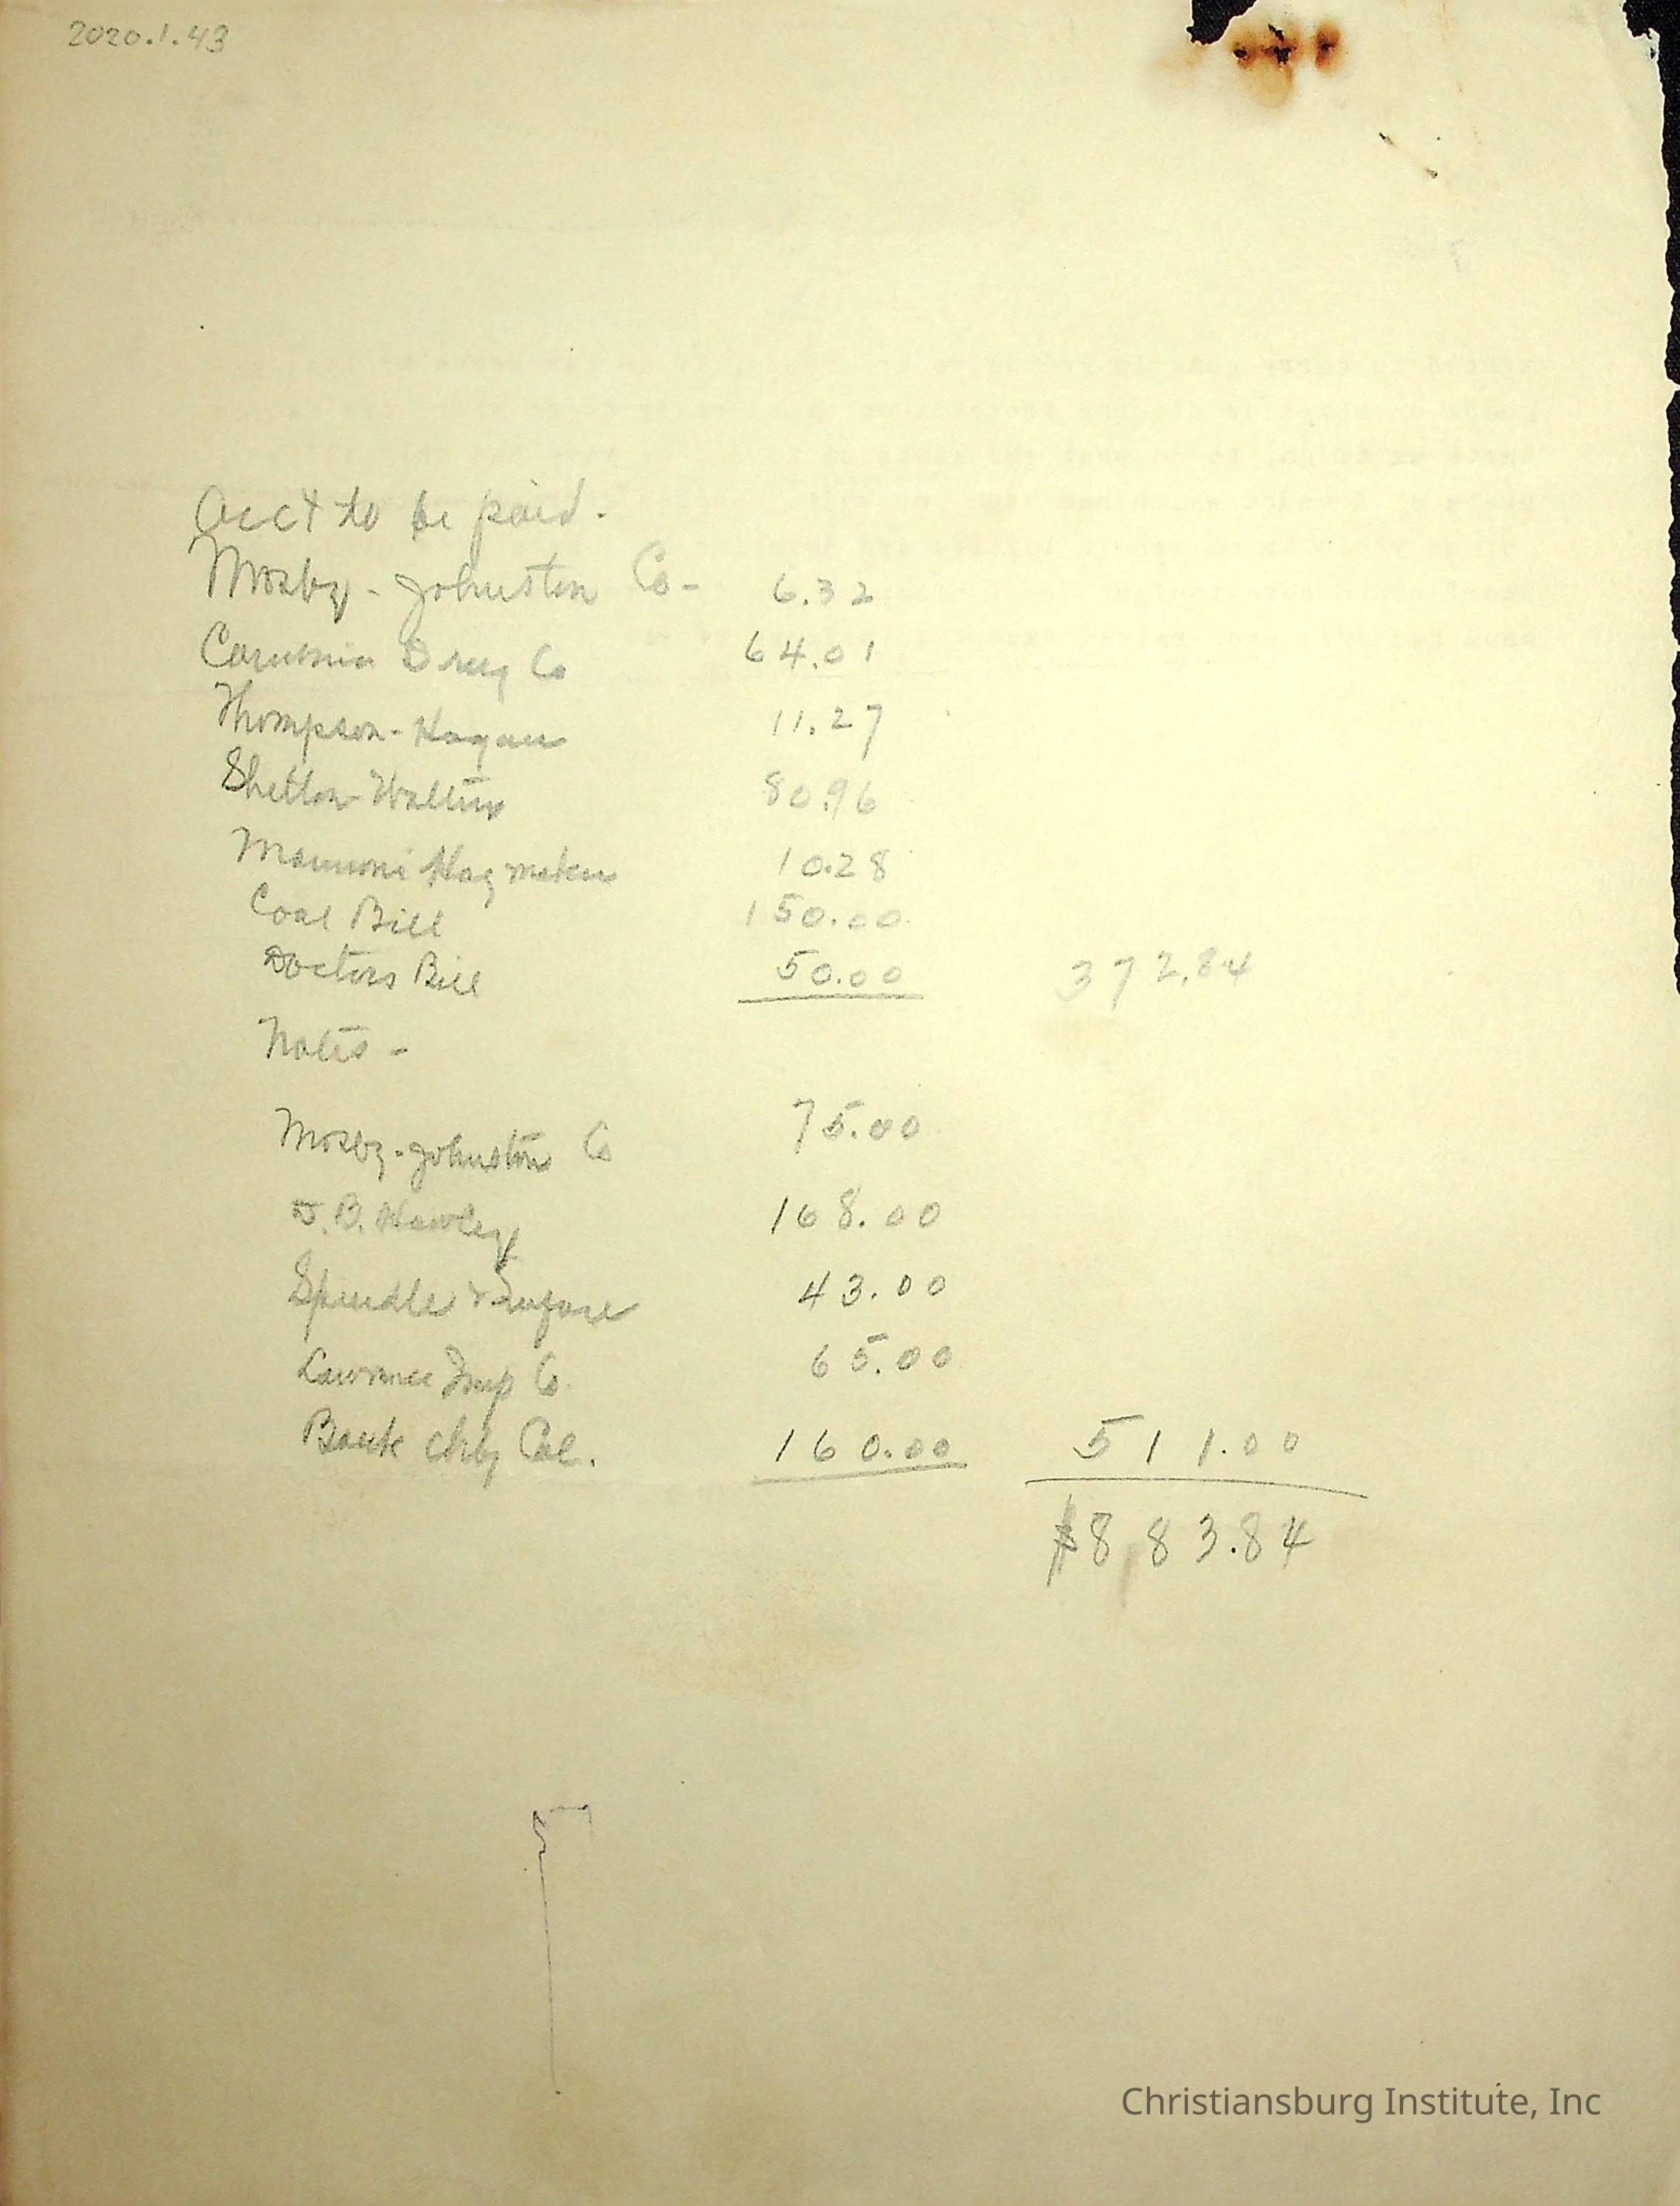 2020.1.43
Acct to be paid.
Mosby-Johnston Co- 6.32
Drug Co 64.01
Thompson-Hagan 11.27
Shelton Walters 80.96
10.28
Coal Bill 150.00
Doctors Bill 50.00 372.84
Notes-
Mosby-Johnston Co 75.00
J.B. Hawley 168.00
Spindle & 43.00
Lawrence Imp Co. 65.00
Bank chbg Cal. 160.00 511.00
$883.84
Christiansburg Institute, Inc